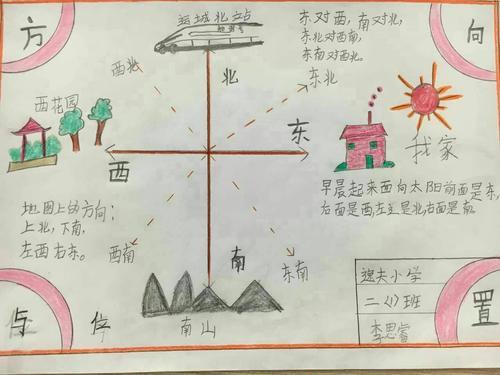 运城北站
和谐号
东对西,南对北,
东北对西南,
东南对西北。
方
向
西北
北
东北
西花园
西
东
找家
早晨起来面向太阳前面是东,
面是西,左是北,右面是南。
地图上的方向:
上北,下南,
左西右东。
西南
南
东南
南山
与位
置
逸夫小学
二〈1〉班
李思睿